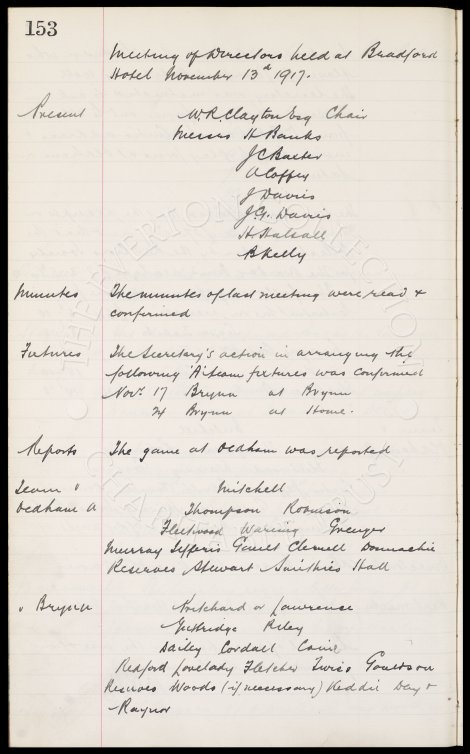 153
Meeting of Directors held at Bradford
Hotel November 13th 1917.
Present W.R. Clayton Esq Chair
Messrs H Banks
J C Baxter
A Coffey
J Davies
J.G. Davies
H. Halsall
B Kelly
Minutes The minutes of last meeting were read &
confirmed
Fixtures The Secretary's action in arranging the
following 'A' team fixtures was confirmed
Novr 17 Brynn at Brynn
24 Brynn at Home.
Reports The game at Oldham was reported
Team v Mitchell
Oldham A Thompson Robinson
Fleetwood Wareing Grenyer
Murray Jefferis Gault Clennell Donnachie
Reserves Stewart Smithies Hall
v Brynn Pritchard or Lawrence
Guttridge Riley
Bailey Cordall
Redford Lovelady Fletcher Twiss Goulson
Reserves Woods (if necessary) Keddie Day &
Raynor
THE EVERTON COLLECTION
CHARITABLE TRUST